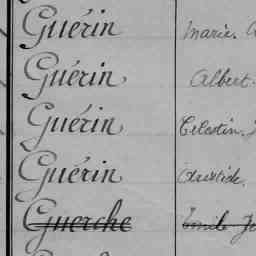 Guérin Marie.
Guérin Albert.
Guérin Célestin.
Guérin Aristide.
Guerche Emile